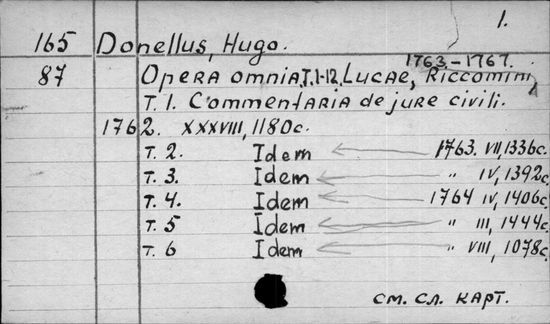 1.
165 Donellus, Hugo.
1763.-1767.
87 Opera omnia, T. 1-12, Lucae, Riccomini,
T. 1. Commentaria de jure civili.
1762. XXXVIII, 1180c.
T. 2. Idem 1763. VII, 1336c.
T. 3. Idem " IV, 1392c.
T. 4. Idem 1764 IV, 1406c.
T. 5 Idem " III, 1444c.
T. 6 Idem " VIII, 1078c.
см. сл. карт.